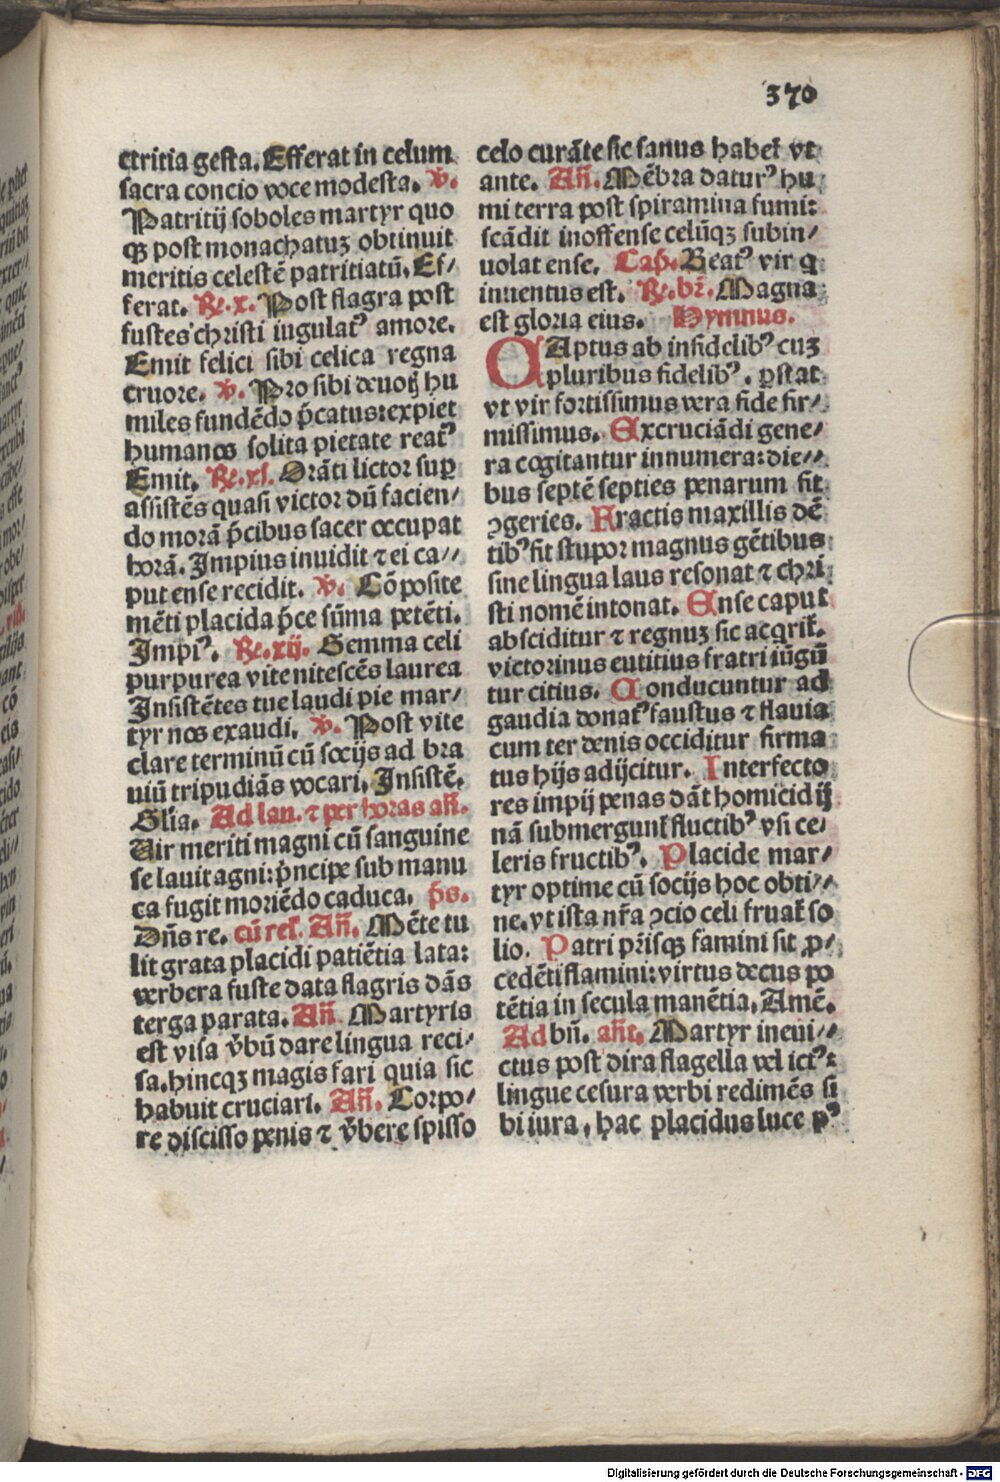 370
ctritia gesta. Efferat in celum
sacra concio voce modesta. v̄.
Patritij soboles martyr quo
qꝫ post monachatuꝫ obtinuit
meritis celestē patritiatū. Ef⸗
ferat. R̷. x. Post flagra post
fustes christi iugulatꝰ amore.
Emit felici sibi celica regna
cruore. v̄. Pro sibi deuotꝭ hu
miles fundēdo p̄catus: expiet
humanos solita pietate reatꝰ
Emit. R̷. xj. Orāti lictor suꝑ
assistēs quasi victor dū facien⸗
do morā p̄cibus sacer occupat
horā. Impius inuidit ⁊ ei ca⸗
put ense recidit. v̄. Cōposite
mēti placida p̄ce sūma petēti.
Impiꝰ. R̷. xij. Gemma celi
purpurea vite nitescēs laurea
Insistētes tue laudi pie mar⸗
tyr nos exaudi. v̄. Post vite
clare terminū cū socijs ad bra
uiū tripudiās vocari. Insistē.
Glīa. Ad lau. ⁊ per horas añ.
Uir meriti magni cū sanguine
se lauit agni: p̄ncipe sub manu
ca fugit moriēdo caduca. p̄s.
Dñs re. cū rel̄. Añ. Mēte tu
lit grata placidi patiētia lata:
verbera fuste data flagris dās
terga parata. Añ. Martyris
est visa v̄bū dare lingua reci⸗
sa. hincqꝫ magis fari quia sic
habuit cruciari. Añ. Corpo⸗
re discisso penis ⁊ v̄bere spisso
celo curāte sic sanus habet̄ vt
ante. Añ. Mēbra daturꝰ hu
mi terra post spiramina fumi:
scādit inoffense celūqꝫ subin⸗
uolat ense. Cap̄. Beatꝰ vir q
inuentus est. R̷. br̄. Magna
est gloria eius. Hymnus.
CAptus ab infidelibꝰ cuꝫ
pluribus fidelibꝰ. ꝑstat
vt vir fortissimus vera fide fir⸗
missimus. Excruciādi gene⸗
ra cogitantur innumera: die⸗
bus septē septies penarum fit
ꝯgeries. Fractis maxillis dē
tibꝰ fit stupor magnus gētibus
sine lingua laus resonat ⁊ chri
sti nomē intonat. Ense caput
absciditur ⁊ regnuꝫ sic acqrit̄.
victorinus eutitius fratri iūgū
tur citius. Conducuntur ad
gaudia donatꝰ faustus ⁊ flauia
cum ter denis occiditur firma
tus hijs adijcitur. Interfecto
res impij penas dāt homicidij
nā submergunt̄ fluctibꝰ vsi ce⸗
leris fructibꝰ. Placide mar⸗
tyr optime cū socijs hoc obti⸗
ne. vt ista nr̄a ꝯcio celi fruat̄ so
lio. Patri pr̄isqꝫ famini sit ꝓ⸗
cedēti flamini: virtus decus po
tētia in secula manētia. Amē.
Ad bñ. añt. Martyr ineui⸗
ctus post dira flagella vel ictꝰ:
lingue cesura verbi redimēs si
bi iura, hac placidus luce pꝰ
Digitalisierung gefördert durch die Deutsche Forschungsgemeinschaft - DFG